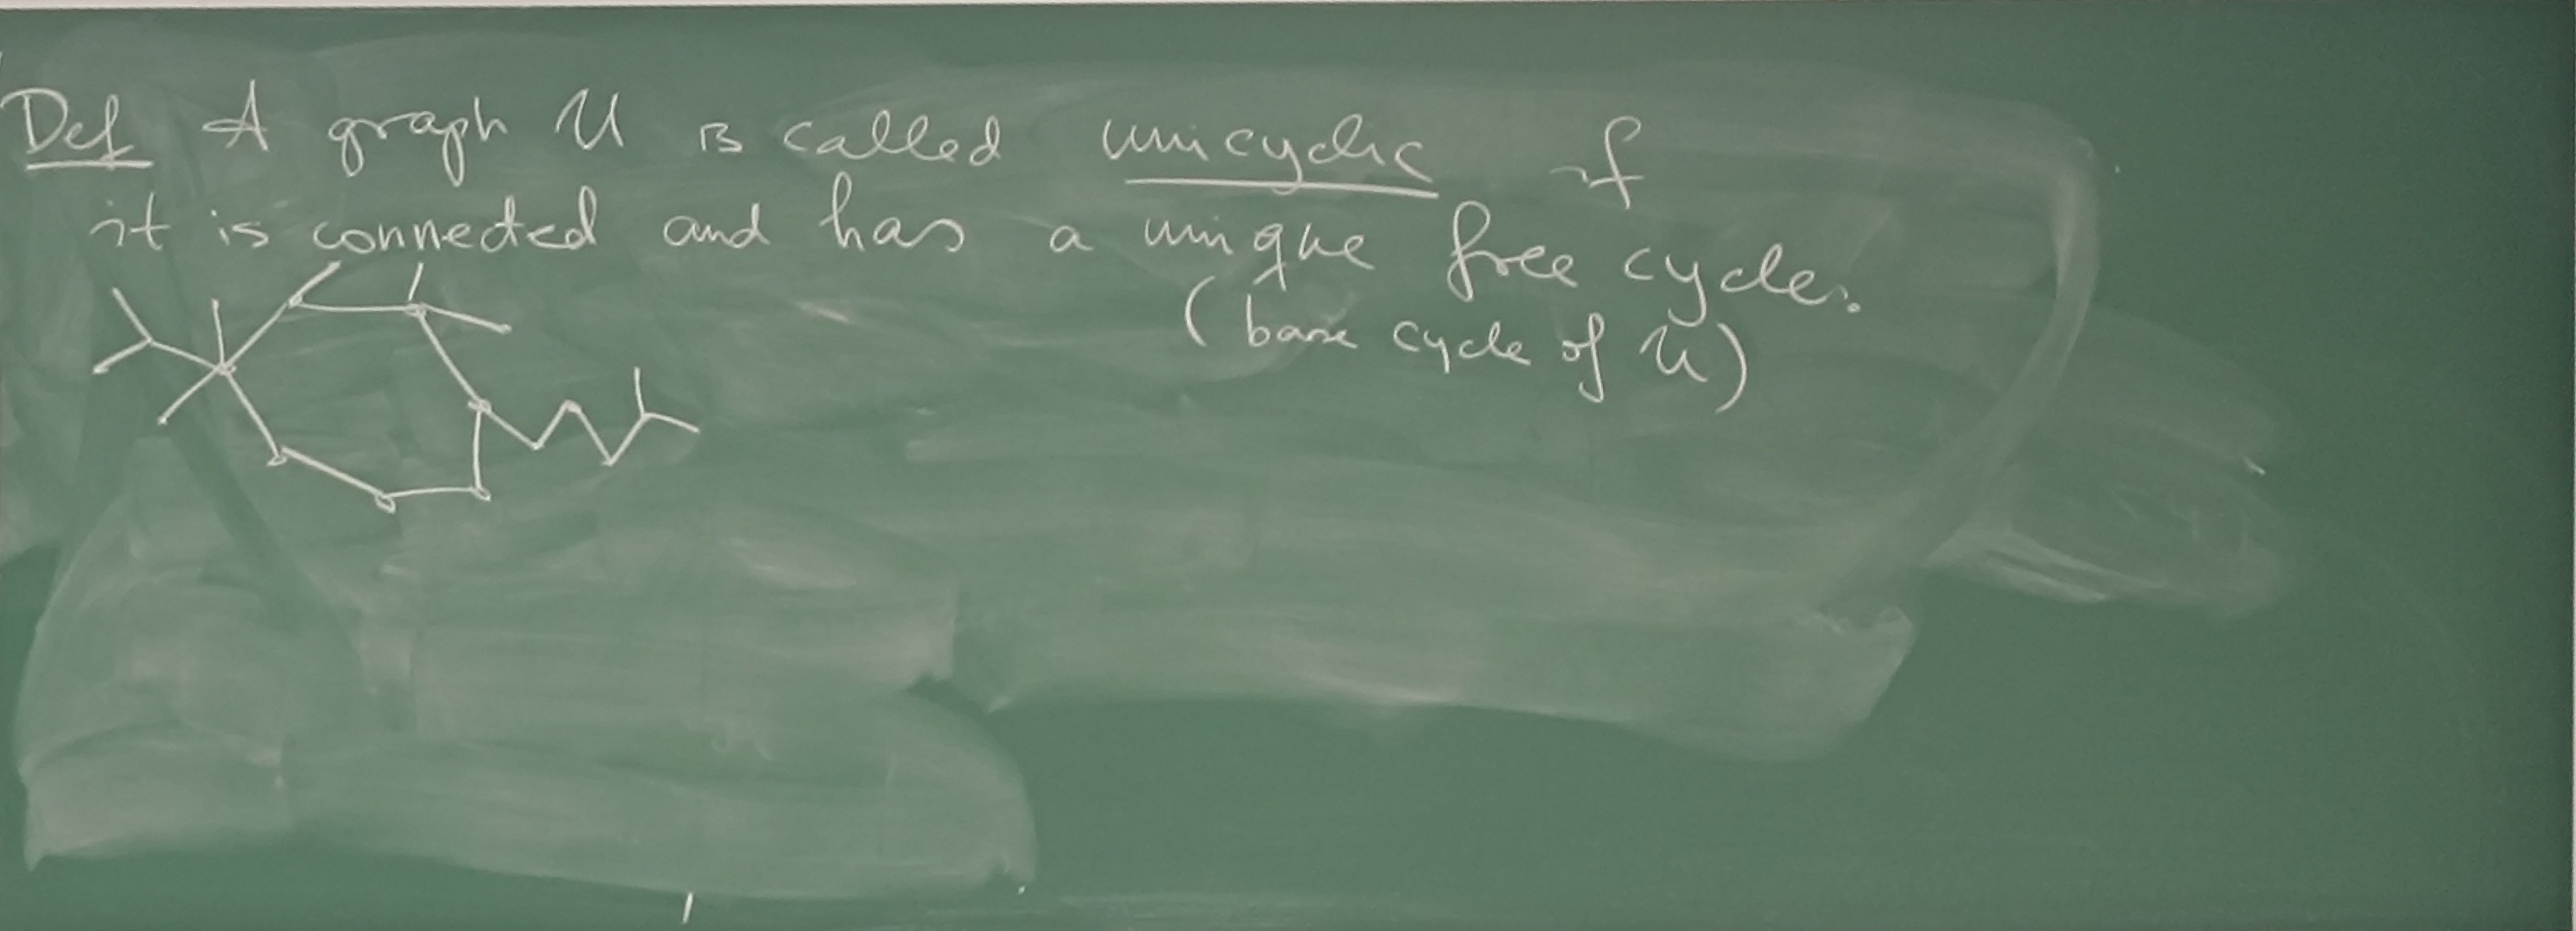 Def A graph U is called unicyclic if
it is connected and has a unique free cycle.
(base cycle of U)